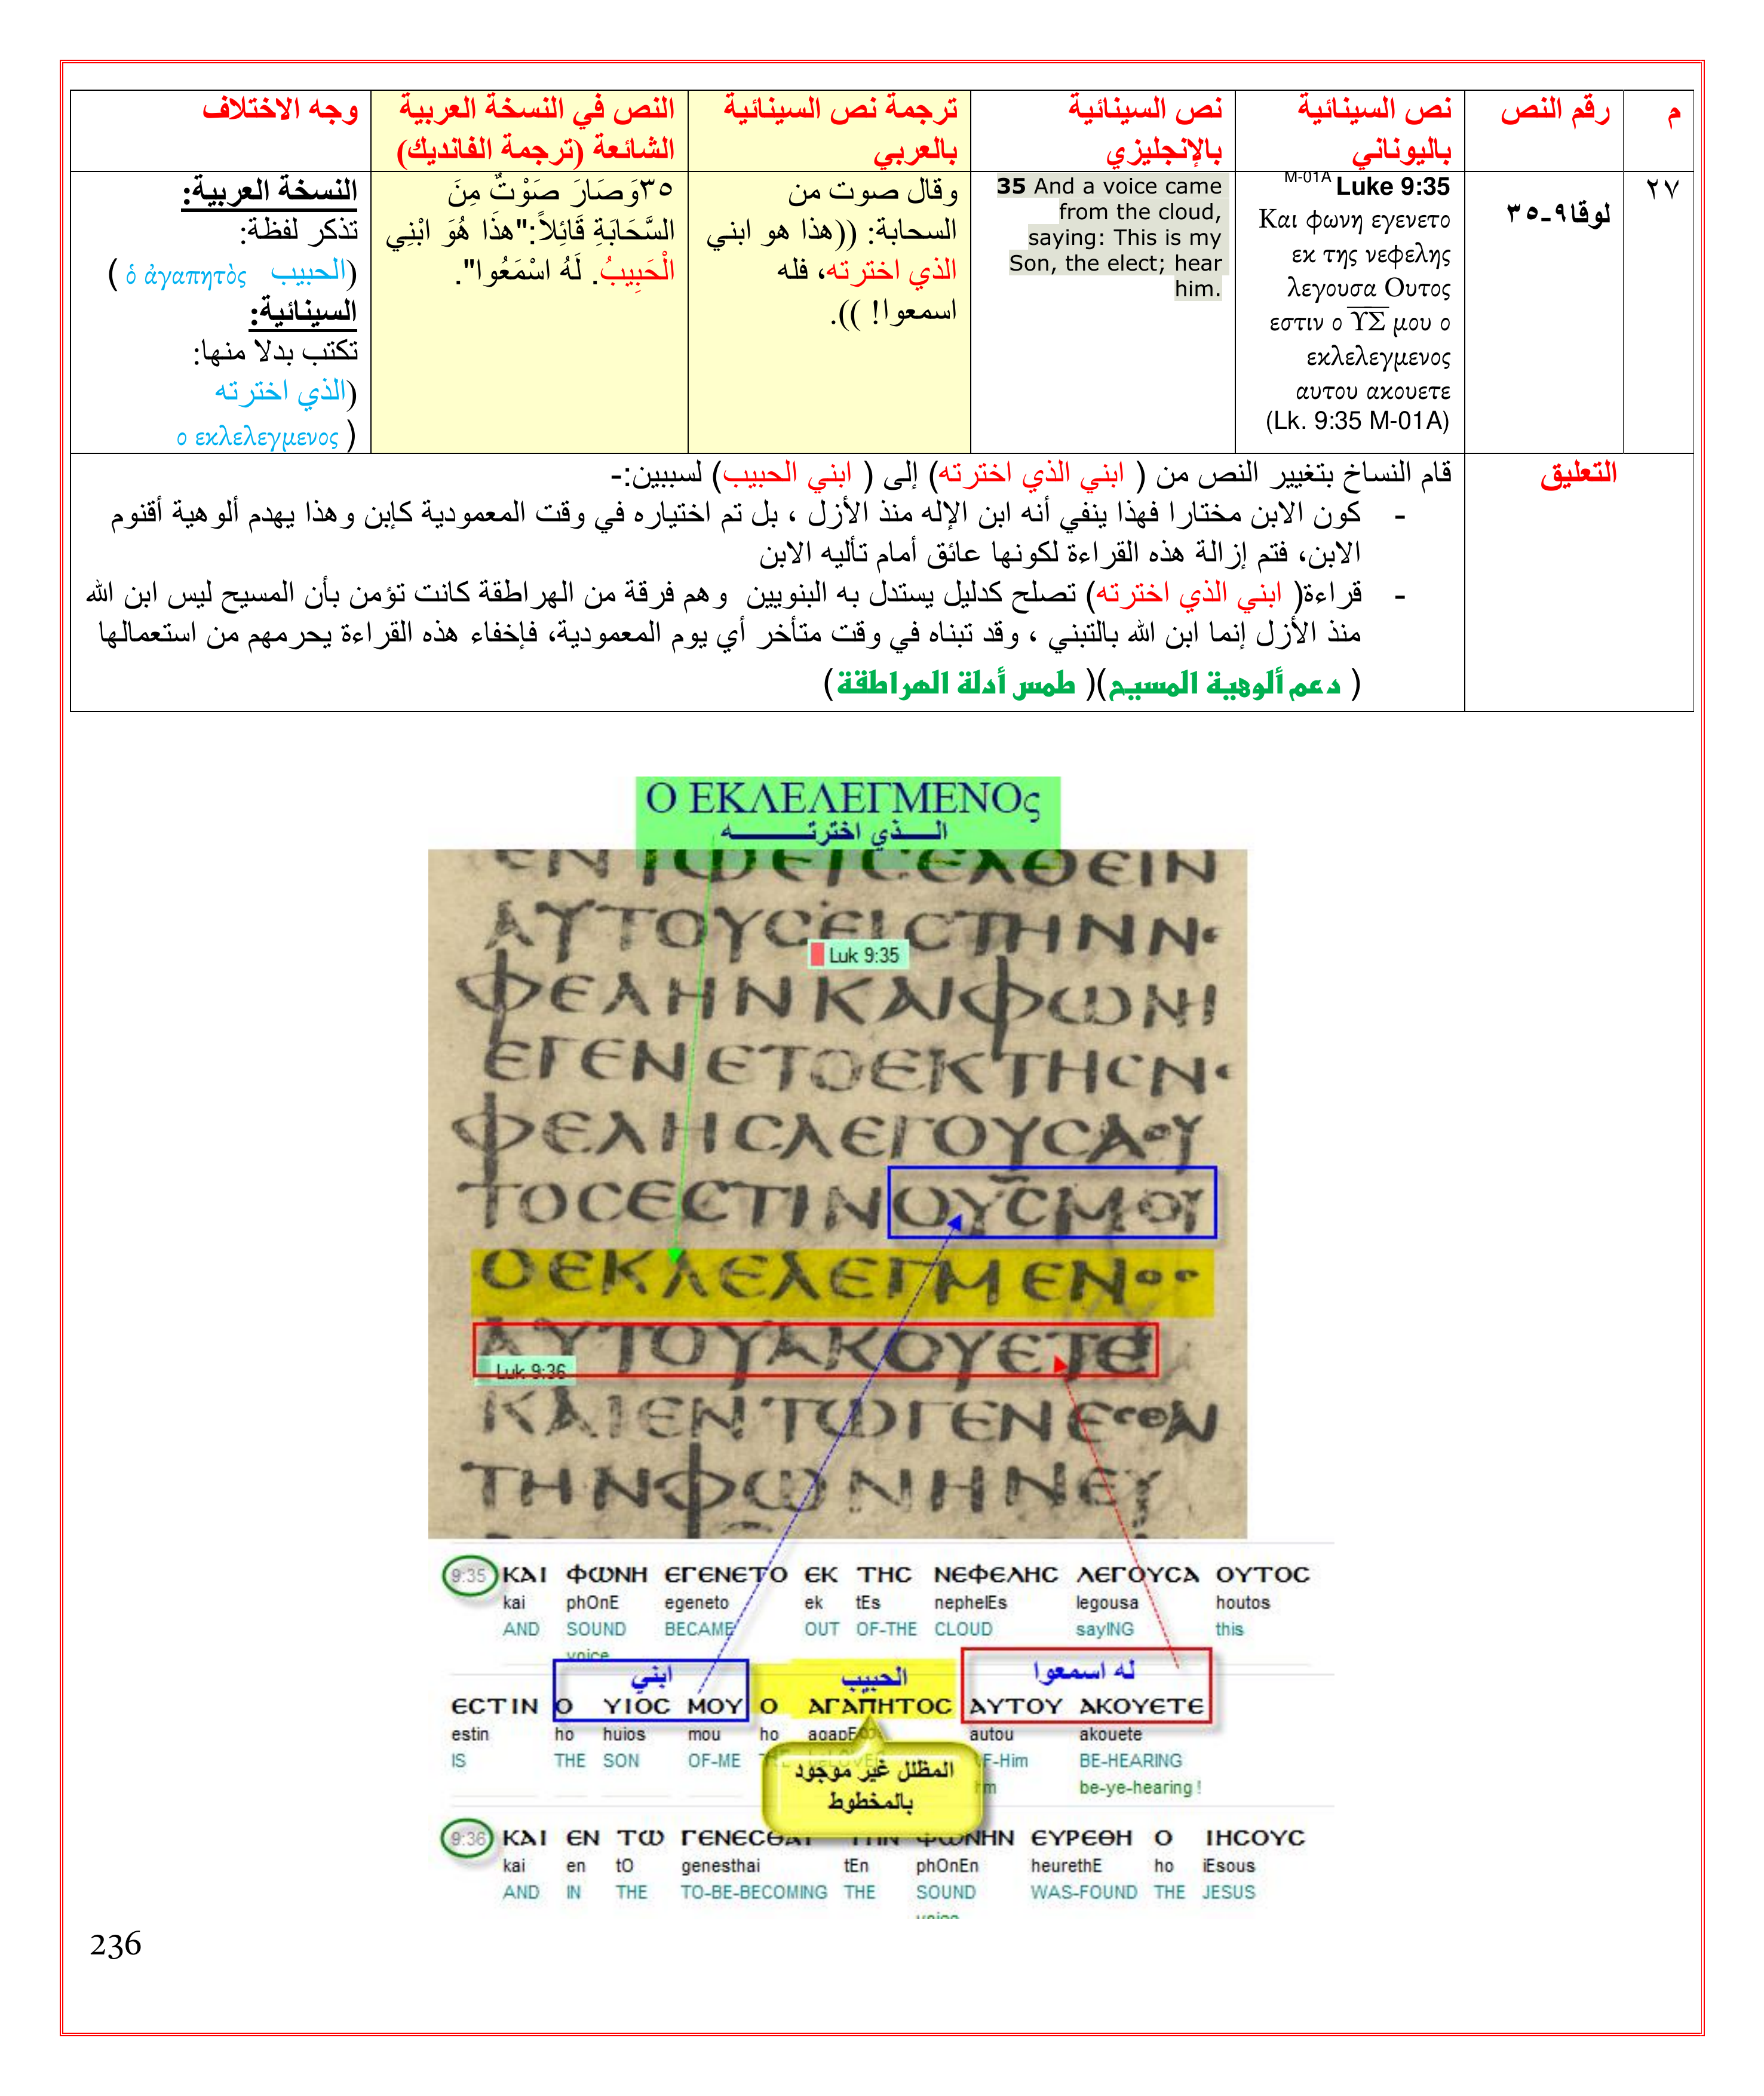 م
رقم النص
نص السينائية
باليوناني
نص السينائية
بالإنجليزي
ترجمة نص السينائية
بالعربي
النص في النسخة العربية
الشائعة (ترجمة الفانديك)
وجه الاختلاف
٢٧
لوقا٩-٣٥
M-01A Luke 9:35
Και φωνη εγενετο
εκ της νεφελης
λεγουσα Ουτος
εστιν ο ΥΣ μου ο
εκλελεγμενος
αυτου ακουετε
(Lk. 9:35 M-01A)
35 And a voice came
from the cloud,
saying: This is my
Son, the elect; hear
him.
وقال صوت من
السحابة: ((هذا هو ابني
الذي اخترته، فله
اسمعوا! )).
٣٥وَصَارَ صَوْتٌ مِنَ
السَّحَابَةِ قَائِلاً:"هذَا هُوَ ابْنِي
الْحَبِيبُ. لَهُ اسْمَعُوا".
النسخة العربية:
تذكر لفظة:
(الحبيب ὁ ἀγαπητὸς )
السينائية:
تكتب بدلا منها:
(الذي اخترته
ο εκλελεγμενος )
التعليق
قام النساخ بتغيير النص من ( ابني الذي اخترته) إلى ( ابني الحبيب) لسببين:-
- كون الابن مختارا فهذا ينفي أنه ابن الإله منذ الأزل ، بل تم اختياره في وقت المعمودية كإبن وهذا يهدم ألوهية أقنوم
الابن، فتم إزالة هذه القراءة لكونها عائق أمام تأليه الابن
- قراءة( ابني الذي اخترته) تصلح كدليل يستدل به البنويين وهم فرقة من الهراطقة كانت تؤمن بأن المسيح ليس ابن الله
منذ الأزل إنما ابن الله بالتبني ، وقد تبناه في وقت متأخر أي يوم المعمودية، فإخفاء هذه القراءة يحرمهم من استعمالها
( دعم ألوهية المسيح)( طمس أدلة الهراطقة)
Ο ΕΚΛΕΛΕΓΜΕΝΟς
الـــذي اخترتـــــــه
ΕΝΤΩΕΙϹΕΛΘΕΙΝ
ΑΥΤΟΥϹΕΙϹΤΗΝΝΕ
Luk 9:35
ΦΕΛΗΝΚΑΙΦΩΝΗ
ΕΓΕΝΕΤΟΕΚΤΗϹΝΕ
ΦΕΛΗϹΛΕΓΟΥϹΑΟΥ
ΤΟϹΕϹΤΙΝΟΥϹΜΟΥ
ΟΕΚΛΕΛΕΓΜΕΝΟϹ
ΑΥΤΟΥΑΚΟΥΕΤΕ
Luk 9:36
ΚΑΙΕΝΤΩΓΕΝΕϹΘΑΙ
ΤΗΝΦΩΝΗΝΕΥ
9:35 ΚΑΙ ΦΩΝΗ ΕΓΕΝΕΤΟ ΕΚ ΤΗϹ ΝΕΦΕΛΗϹ ΛΕΓΟΥϹΑ ΟΥΤΟϹ
kai phOnE egeneto ek tEs nephelEs legousa houtos
AND SOUND BECAME OUT OF-THE CLOUD sayING this
voice
ابني الحبيب له اسمعوا
ΕϹΤΙΝ Ο ΥΙΟϹ ΜΟΥ Ο ΑΓΑΠΗΤΟϹ ΑΥΤΟΥ ΑΚΟΥΕΤΕ
estin ho huios mou ho autou akouete
IS THE SON OF-ME BE-HEARING
be-ye-hearing !
المظلل غير موجود
بالمخطوط
9:36 ΚΑΙ ΕΝ ΤΩ ΓΕΝΕϹΘΑΙ ΤΗΝ ΦΩΝΗΝ ΕΥΡΕΘΗ Ο ΙΗϹΟΥϹ
kai en tO genesthai tEn phOnEn heurethE ho iEsous
AND IN THE TO-BE-BECOMING THE SOUND WAS-FOUND THE JESUS
voice
236